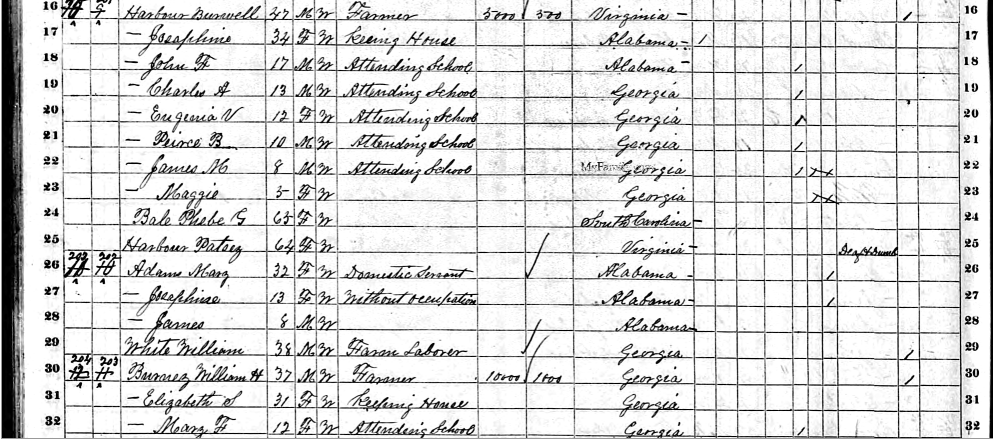 16 Harbour Burwell 47 M W Farmer 5000 500 Virginia 1 16
17 — Josephine 34 F W Keeing House Alabama 1 17
18 — John F 17 M W Attending School Alabama 1 18
19 — Charles A 13 M W Attending School Georgia 1 19
20 — Eugenia V 12 F W Attending School Georgia 1 20
21 — Peirce B 10 M W Attending School Georgia 1 21
22 — James M 8 M W Attending School Georgia 1 22
23 — Maggie 5 F W Georgia 23
24 Bale Phebe G 65 F W South Carolina 24
25 Harbour Patsey 64 F W Virginia Deaf & Dumb 25
26 202 202 Adams Mary 32 F W Domestic Servant Alabama 1 26
27 — Josephine 13 F W Without occupation Alabama 1 27
28 — James 8 M W Alabama 28
29 White William 38 M W Farm Laborer Georgia 1 29
30 204 203 Burney William H 37 M W Farmer 10000 1000 Georgia 1 30
31 — Elizabeth S 31 F W Keeping House Georgia 31
32 — Mary F 12 F W Attending School Georgia 1 32